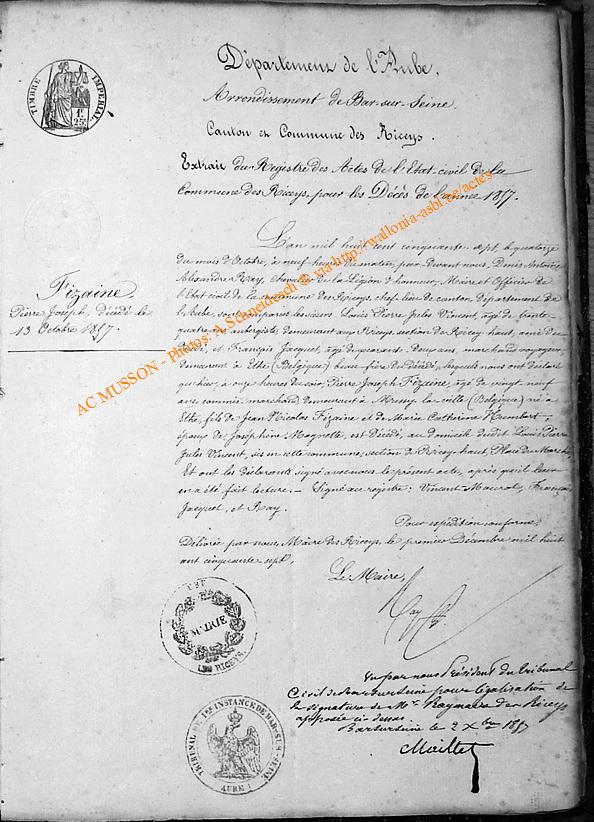 TIMBRE IMPÉRIAL
1F. 25c
Département de l'Aube.
Arrondissement de Bar-sur-Seine
Canton et Commune des Riceys.
Extrait du Registre des Actes de l'Etat-civil de la
Commune des Riceys, pour les Décès de l'année 1857.
Fizaine,
Pierre Joseph, décédé le
13 Octobre 1857.
L'an mil huit cent cinquante-sept, le quatorze
du mois d'Octobre, à neuf heures du matin, par devant nous, Denis Antoine
Alexandre Ray, Chevalier de la Légion d'honneur, Maire et Officier de
l'Etat civil de la commune des Riceys, chef lieu de canton, Département de
l'Aube, sont comparus les sieurs Louis Pierre Jules Vincent, âgé de trente
quatre ans, aubergiste, demeurant aux Riceys, section de Ricey-haut, ami du
décédé, et François Jacquet, âgé de quarante-deux ans, marchand voyageur,
demeurant à Ethe (Belgique) beau-frère du décédé, lesquels nous ont déclaré
qu'hier, à onze heures du soir, Pierre Joseph Fizaine, âgé de vingt neuf
ans, commis marchand, demeurant à Mussy-la-ville (Belgique) né à
Ethe, fils de Jean Nicolas Fizaine et de Marie Catherine Humbert,
époux de Joséphine Maynette, est décédé, au domicile dudit Louis Pierre
Jules Vincent, sis en cette commune, section de Ricey-haut, Place du Marché
Et ont les déclarants signé avec nous le présent acte, après qu'il leur
en a été fait lecture. — Signé au registre: Vincent-Maurol, François
Jacquet, et Ray.
Pour expédition conforme,
Délivrée par nous, Maire des Riceys, le premier Décembre mil huit
cent cinquante sept,
Le Maire,
Ray
MAIRIE
LES RICEYS.
Vu par nous Président du tribunal
Civil de Bar sur Seine pour légalisation de
la signature de Mr Ray maire des Riceys
apposée ci-dessus
Bar sur Seine le 2 Xbre 1857
Maillet
TRIBUNAL DE 1re INSTANCE DE BAR-SUR-SEINE
AUBE
AC MUSSON - Photos: A. Schneidesch @ via http://wallonia-asbl.be/actes